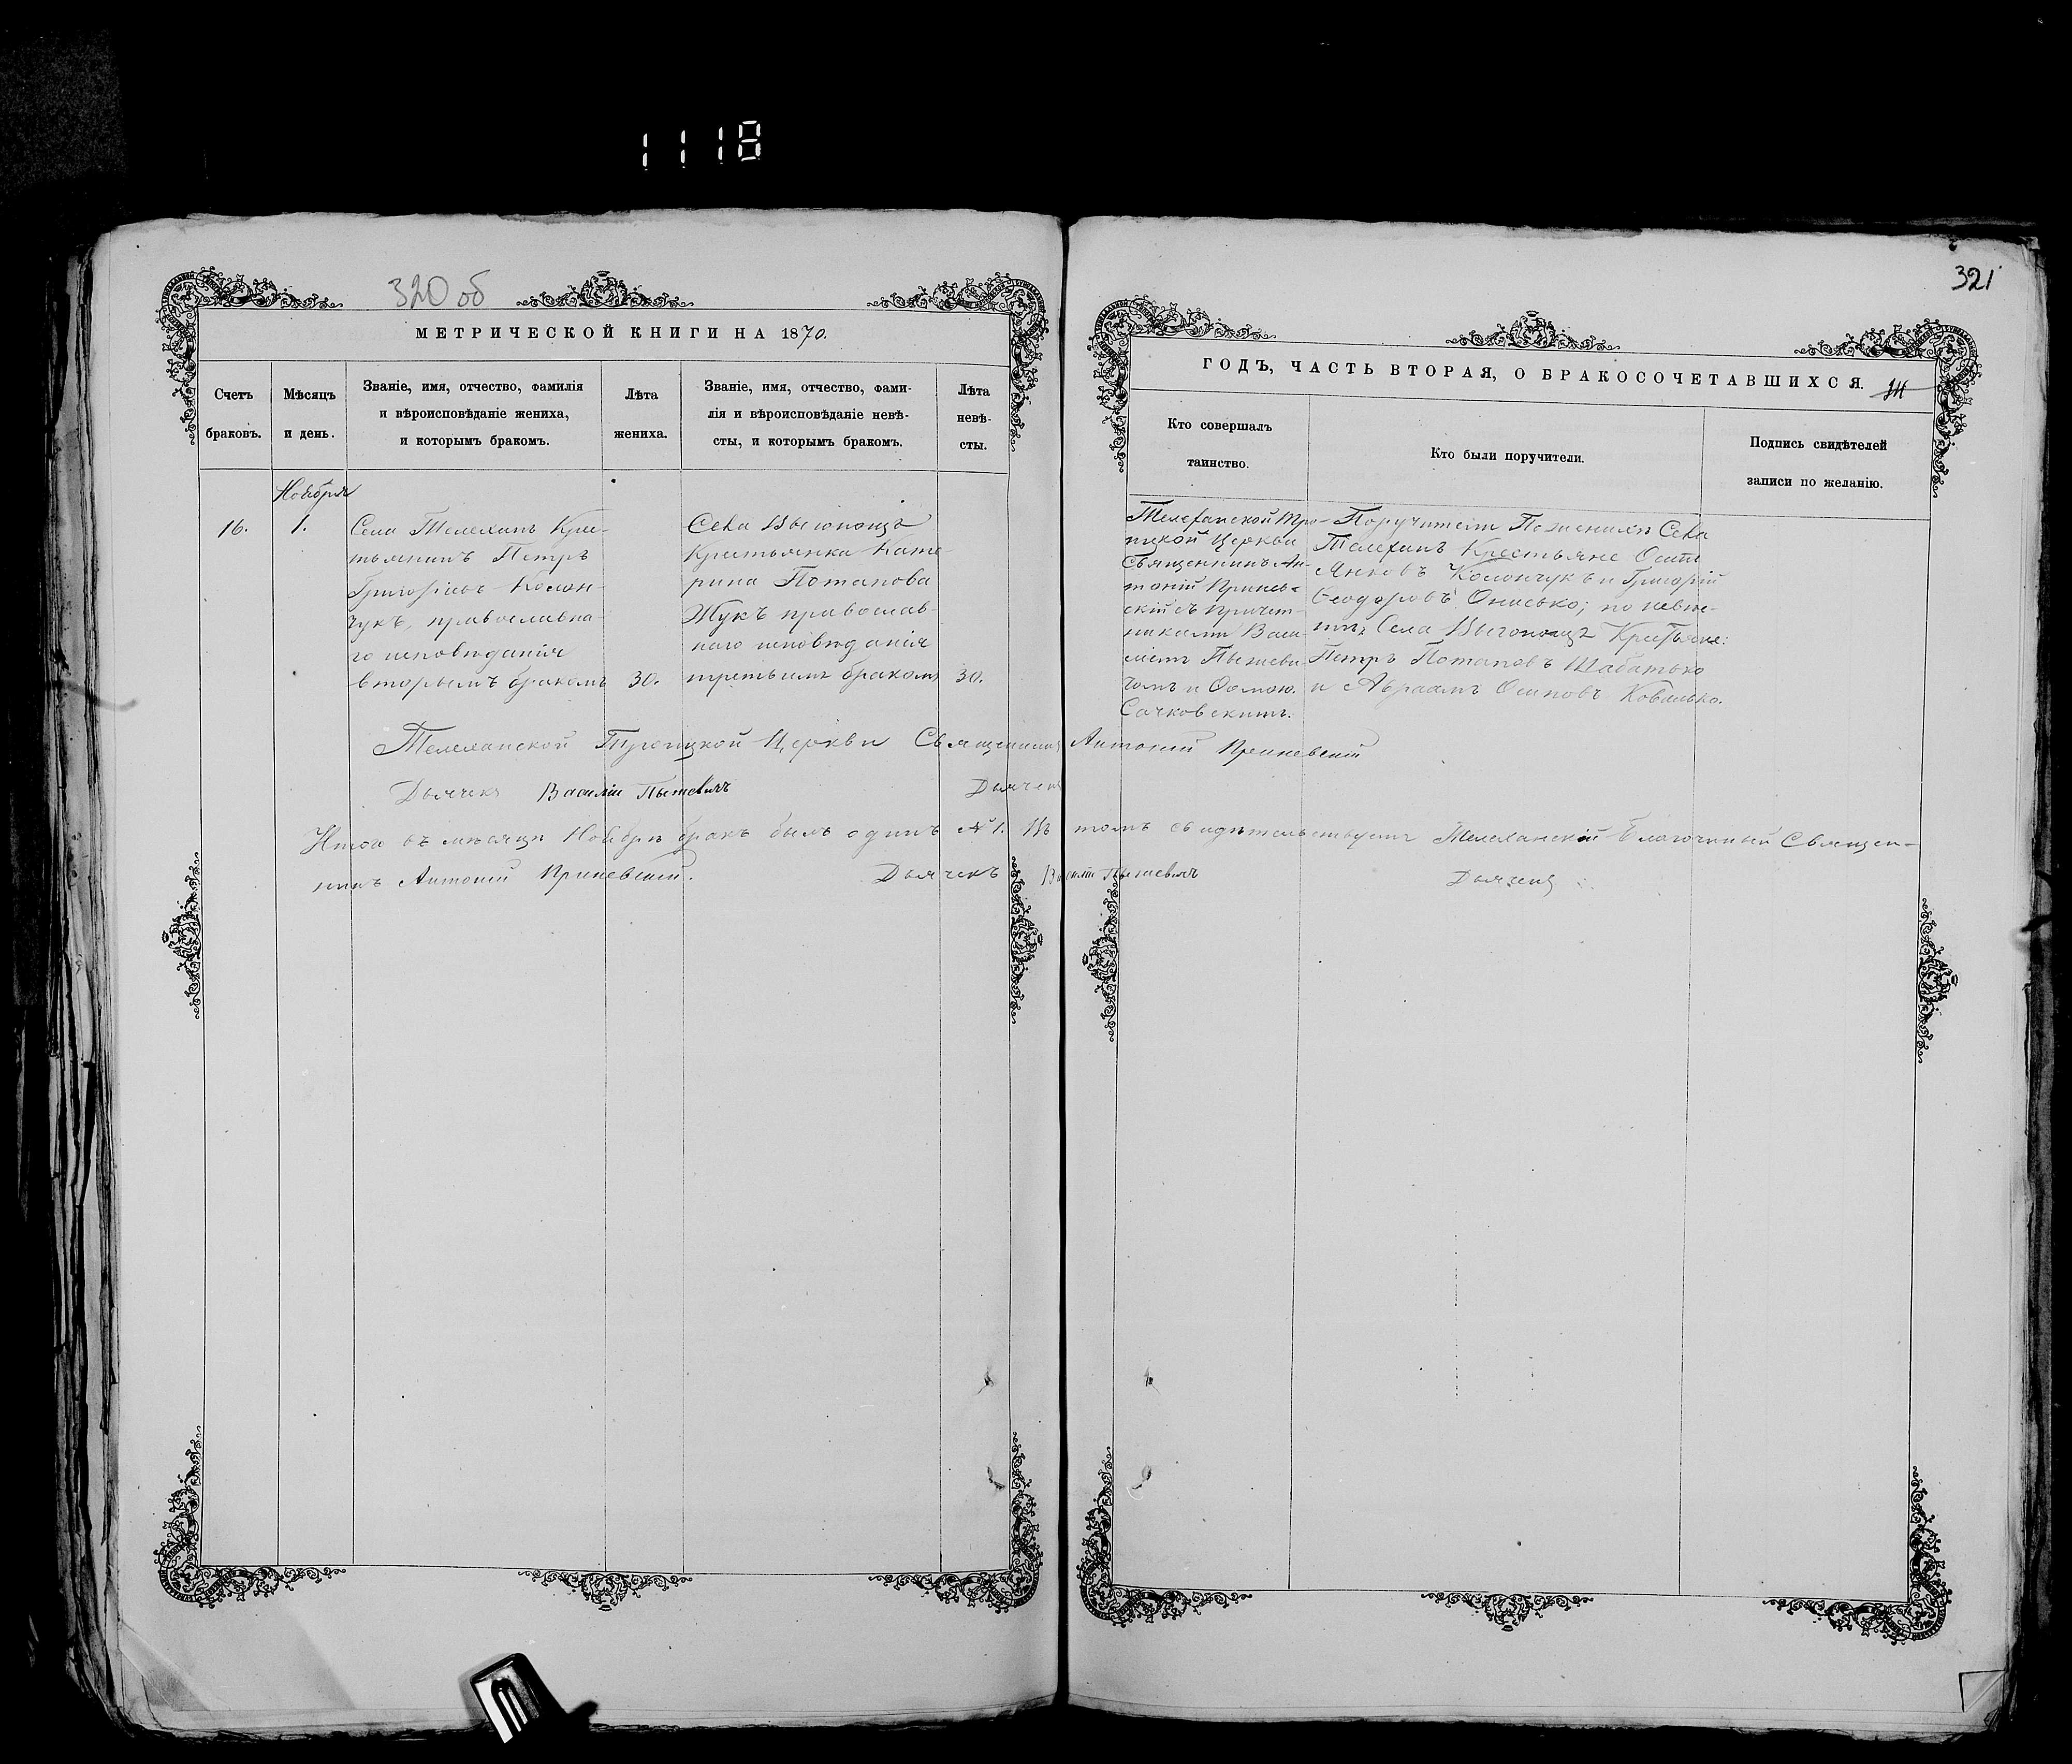 1118
320 об
МЕТРИЧЕСКОЙ КНИГИ НА 1870.
Счетъ браковъ.
Мѣсяцъ и день.
Званіе, имя, отчество, фамилія
и вѣроисповѣданіе жениха,
и которымъ бракомъ.
Лѣта
жениха.
Званіе, имя, отчество, фами-
лія и вѣроисповѣданіе невѣ-
сты, и которымъ бракомъ.
Лѣта
невѣ-
сты.
Ноября
16.
1.
Села Телеханъ Кре-
тьянинъ Петръ
Григорьевъ Колон-
чукъ, православна-
го исповѣданія
вторымъ бракомъ
30.
Села Выгонощъ
Крестьянка Кате-
рина Потапова
Жукъ православ-
наго исповѣданія
третьимъ бракомъ
30.
321
ГОДЪ, ЧАСТЬ ВТОРАЯ, О БРАКОСОЧЕТАВШИХСЯ.
Кто совершалъ
таинство.
Кто были поручители.
Подпись свидѣтелей
записи по желанію.
Телеханской Тро-
ицкой Церкви
Священникъ Ан-
тоній
скій съ Причет-
никами Васи-
ліемъ
чемъ и Ѳомою
Сачковскимъ.
Поручители По женихѣ Села
Телеханъ Крестьяне Осипъ
Янковъ Колончукъ и Григорій
Ѳеодоровъ Онисько; по невѣс-
тѣ, Села Выгонощъ Крестьяне:
Петръ Потаповъ Шабатько
и Авраамъ Осиповъ Ковалько.
Телеханской Троицкой Церкви Священникъ Антоній
Дьячекъ Василій
Дьячекъ
Итого въ мѣсяцѣ Ноябрѣ бракъ былъ одинъ № 1. Въ томъ свидѣтельствуемъ Телеханскій Благочинный Священ-
никъ Антоній
Дьячекъ Василій
Дьячекъ